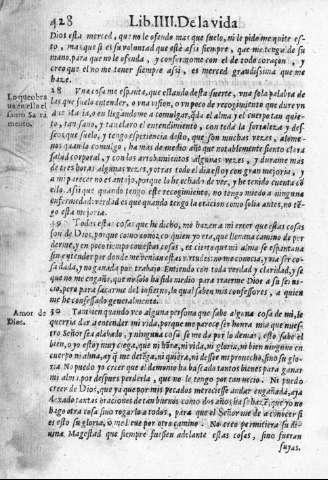 428 Lib. IIII. De la vida
Dios esta merced, que no le ofendo mas que suelo, ni le pido me quite es-
to, mas que si es su voluntad que esté assi siempre, que me tenga de su
mano, para que no le ofenda, y conformome con el de todo coraçon, y
creo que el no me tener siempre assi, es merced grandissima que me
haze.
28 Vna cosa me espanta, que estando desta suerte, vna sola palabra de
las que suelo entender, o vna vision, o vn poco de recogimiento que dure vn
en llegandome a comulgar, queda el alma y el cuerpo tan quie-
to, tan sano, y tan claro el entendimiento, con toda la fortaleza y des-
seos que suelo, y tengo experiencia desto, que son muchas vezes, alome-
nos quando comulgo, ha mas de medio año que notablemente siento clara
salud corporal, y con los arrobamientos algunas vezes, y durame mas
de tres horas algunas vezes, y otras todo el dia estoy con gran mejoria, y
a mi parecer no es antojo, porque lo he echado de ver, y he tenido cuenta de
ello. Assi que quando tengo este recogimiento, no tengo miedo a ninguna
enfermedad: verdad es que quando tengo la oracion como solia antes, no tẽ-
go esta mejoria.
29 Todas estas cosas que he dicho, me hazen a mi creer que estas cosas
son de Dios, porque como conozco quien yo era, que lleuaua camino de per
derme, y en poco tiempo con estas cosas, es cierto que mi alma se espantaua
sin entender por donde me venian estas virtudes: no me conocia, y via ser co-
sa dada, y no ganada por trabajo. Entiendo con toda verdad y claridad, y se
que no me engaño, que no solo ha sido medio para traerme Dios a su serui-
cio, pero para sacarme del infierno, lo qual saben mis confessores, a quien
me he confessado generalmente.
30 Tambien quando veo alguna persona que sabe alguna cosa de mi, le
querria dar a entender mi vida, porque me parece ser honra mia que nues-
tro Señor sea alabado, y ninguna cosa se me da por lo demas; esto sabe el
bien, o yo estoy muy ciega, que ni hõra, ni vida, ni gloria, ni bien ninguno en
cuerpo ni alma, ay q̃ me detẽga, ni quiera, ni dessee mi prouecho, sino su glo
ria. No puedo yo creer que el demonio ha buscado tantos bienes para ganar
mi alma, por despues perderla, que no le tengo por tan necio. Ni puedo
creer de Dios, que ya que por mis pecados mereciesse andar engañada, aya
dexado tantas oraciones de tan buenos como dos años ha se hazẽ, que yo no
hago otra cosa sino rogarlo a todos, para que el Señor me dé a conocer si
es esto su gloria, o me lleue por otro camino. No creo permitiera su di-
uina Magestad que siempre fuessen adelante estas cosas, sino fueran
suyas.
Lo que obra
ua en ella el
santo Sacra
mento.
Amor de
Dios.